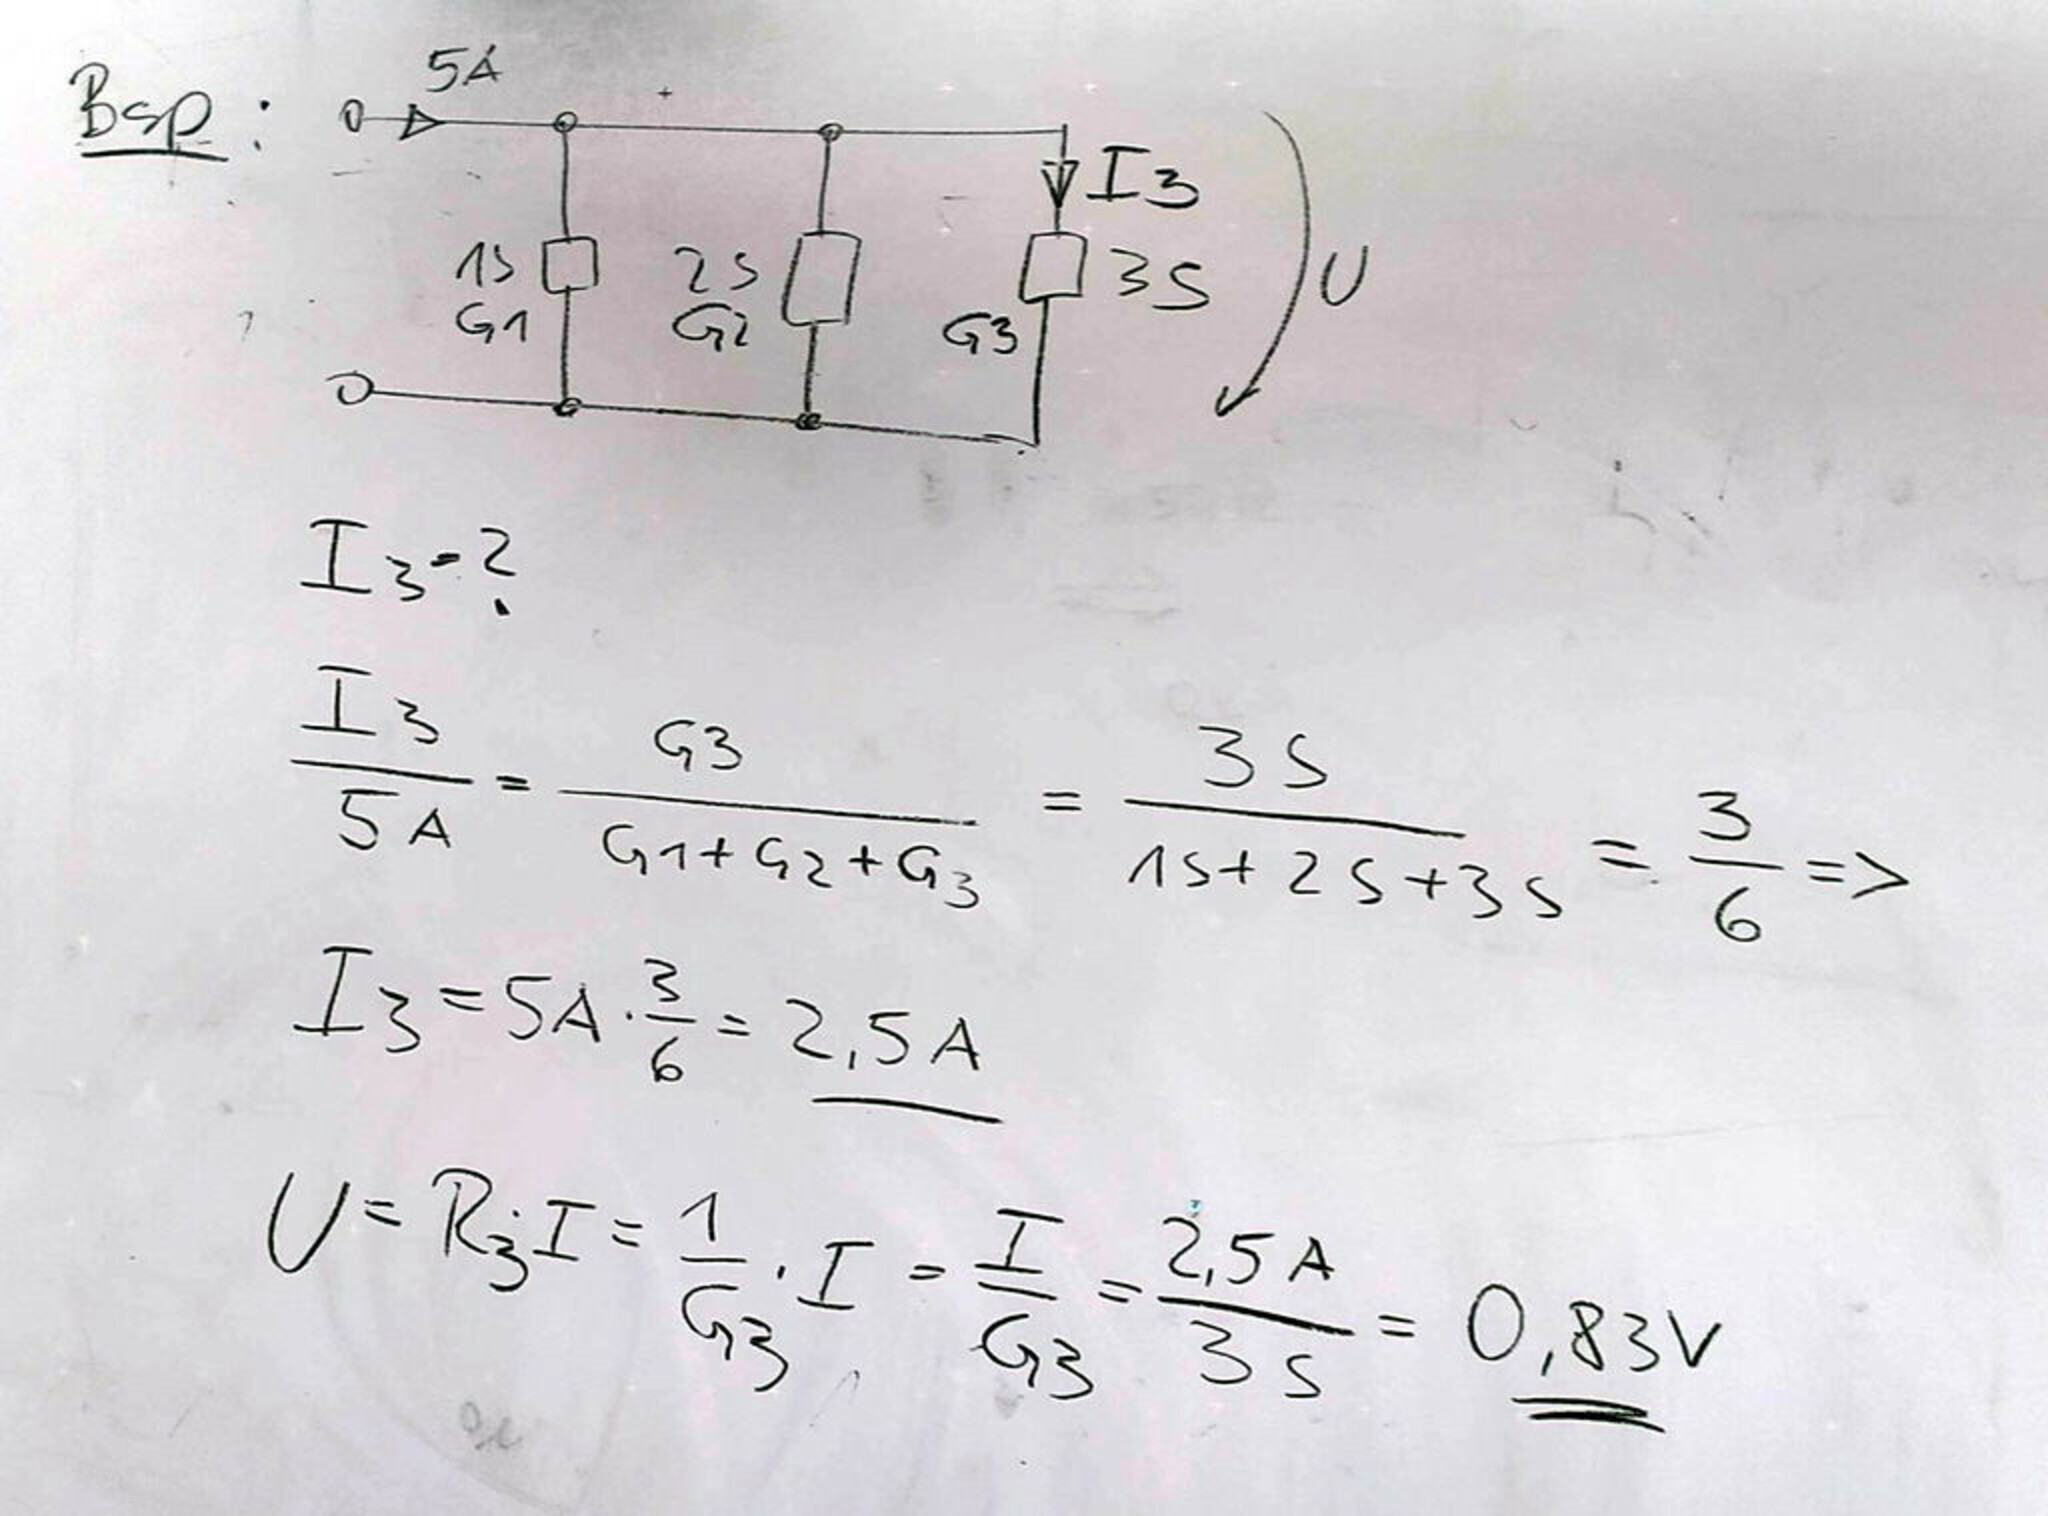 Bsp:
5A
I3
1S
G1
2S
G2
G3
3S
U
I3 = ?
I3/5A = G3/(G1+G2+G3) = 3S/(1S+2S+3S) = 3/6 =>
I3 = 5A · 3/6 = 2,5A
U = R3·I = 1/G3 · I = I/G3 = 2,5A/3S = 0,83V